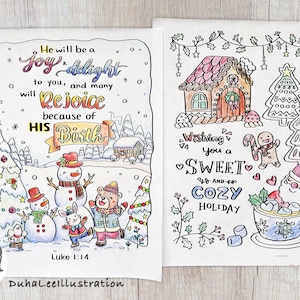 He will be a
joy and delight
to you, and many
will Rejoice
because of
HIS Birth
Luke 1:14
Wishing
you a
SWEET
AND
COZY
HOLIDAY
DuhaLeeIllustration